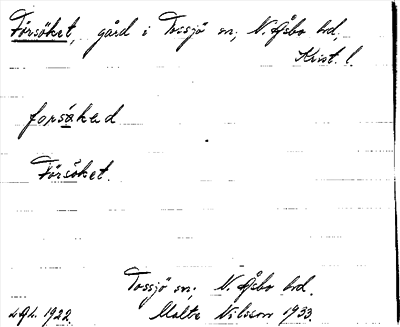 Försöket, gård i Tossjö sn, N. Åsbo hd,
Krist. l.
forsøked
Försöket.
Tossjö sn, N. Åsbo hd.
1922. Malte Nilsson 1933.